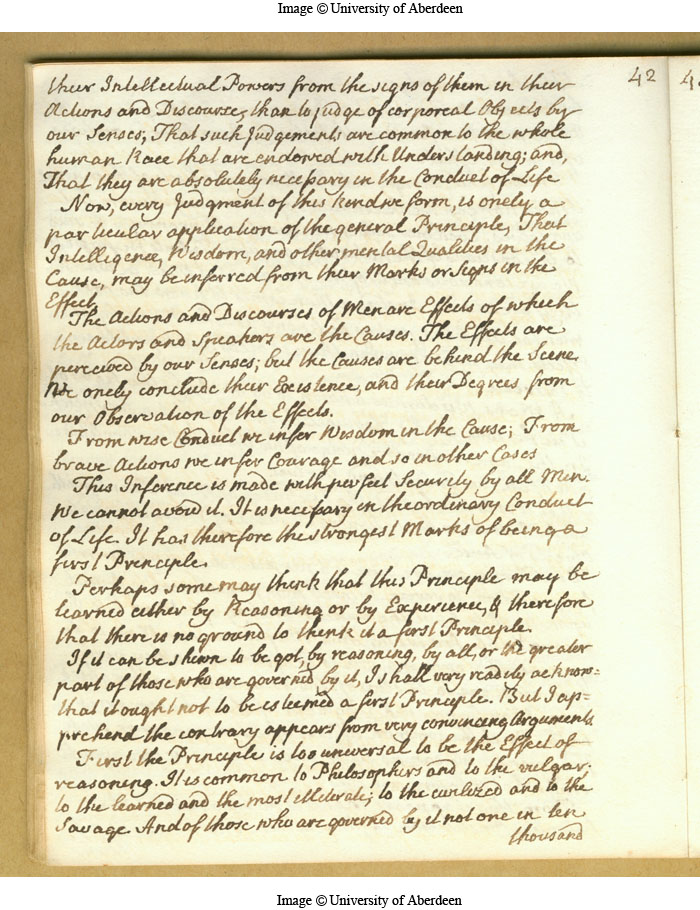 Image © University of Aberdeen
42
their Intellectual Powers from the signs of them in their
Actions and Discourse, than to judge of corporeal Objects by
our Senses; That such Judgements are common to the whole
human Race that are endowed with Understanding; and,
That they are absolutely necessary in the Conduct of Life
Now, every Judgment of this kind we form, is onely a
particular application of the general Principle, That
Intelligence, Wisdom, and other mental Qualities in the
Cause, may be inferred from their Marks or Signs in the
Effect.
The Actions and Discourses of Men are Effects of which
the Actors and Speakers are the Causes. The Effects are
perceived by our Senses; but the Causes are behind the Scene.
We onely conclude their Existence, and their Degrees from
our Observation of the Effects.
From wise Conduct we infer Wisdom in the Cause; From
brave Actions we infer Courage and so in other Cases
This Inference is made with perfect Security by all Men.
We cannot avoid it. It is necessary in the ordinary Conduct
of Life. It has therefore the strongest Marks of being a
first Principle.
Perhaps some may think that this Principle may be
learned either by Reasoning or by Experience, & therefore
that there is no ground to think it a first Principle.
If it can be shewn to be got, by reasoning, by all, or the greater
part of those who are governed by it, I shall very readily acknow=
that it ought not to be esteemed a first Principle. But I ap=
prehend the contrary appears from very convincing Arguments
First the Principle is too universal to be the Effect of
reasoning. It is common to Philosophers and to the vulgar;
to the learned and the most illiterate; to the civilized and to the
Savage. And of those who are governed by it not one in ten
thousand
Image © University of Aberdeen